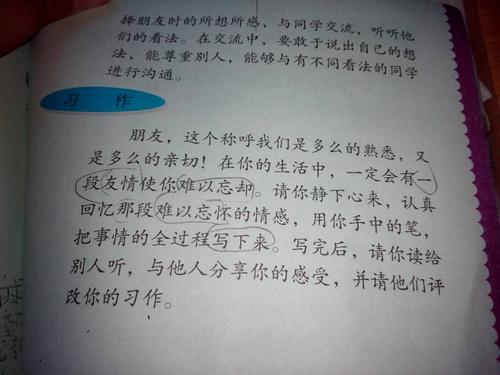 择朋友时的所想所感，与同学交流，听听他
们的看法。在交流中，要敢于说出自己的想
法，能尊重别人，能够与有不同看法的同学
进行沟通。
习 作
朋友，这个称呼我们是多么的熟悉，又
是多么的亲切！在你的生活中，一定会有一
段友情使你难以忘却。请你静下心来，认真
回忆那段难以忘怀的情感，用你手中的笔，
把事情的全过程写下来。写完后，请你读给
别人听，与他人分享你的感受，并请他们评
改你的习作。